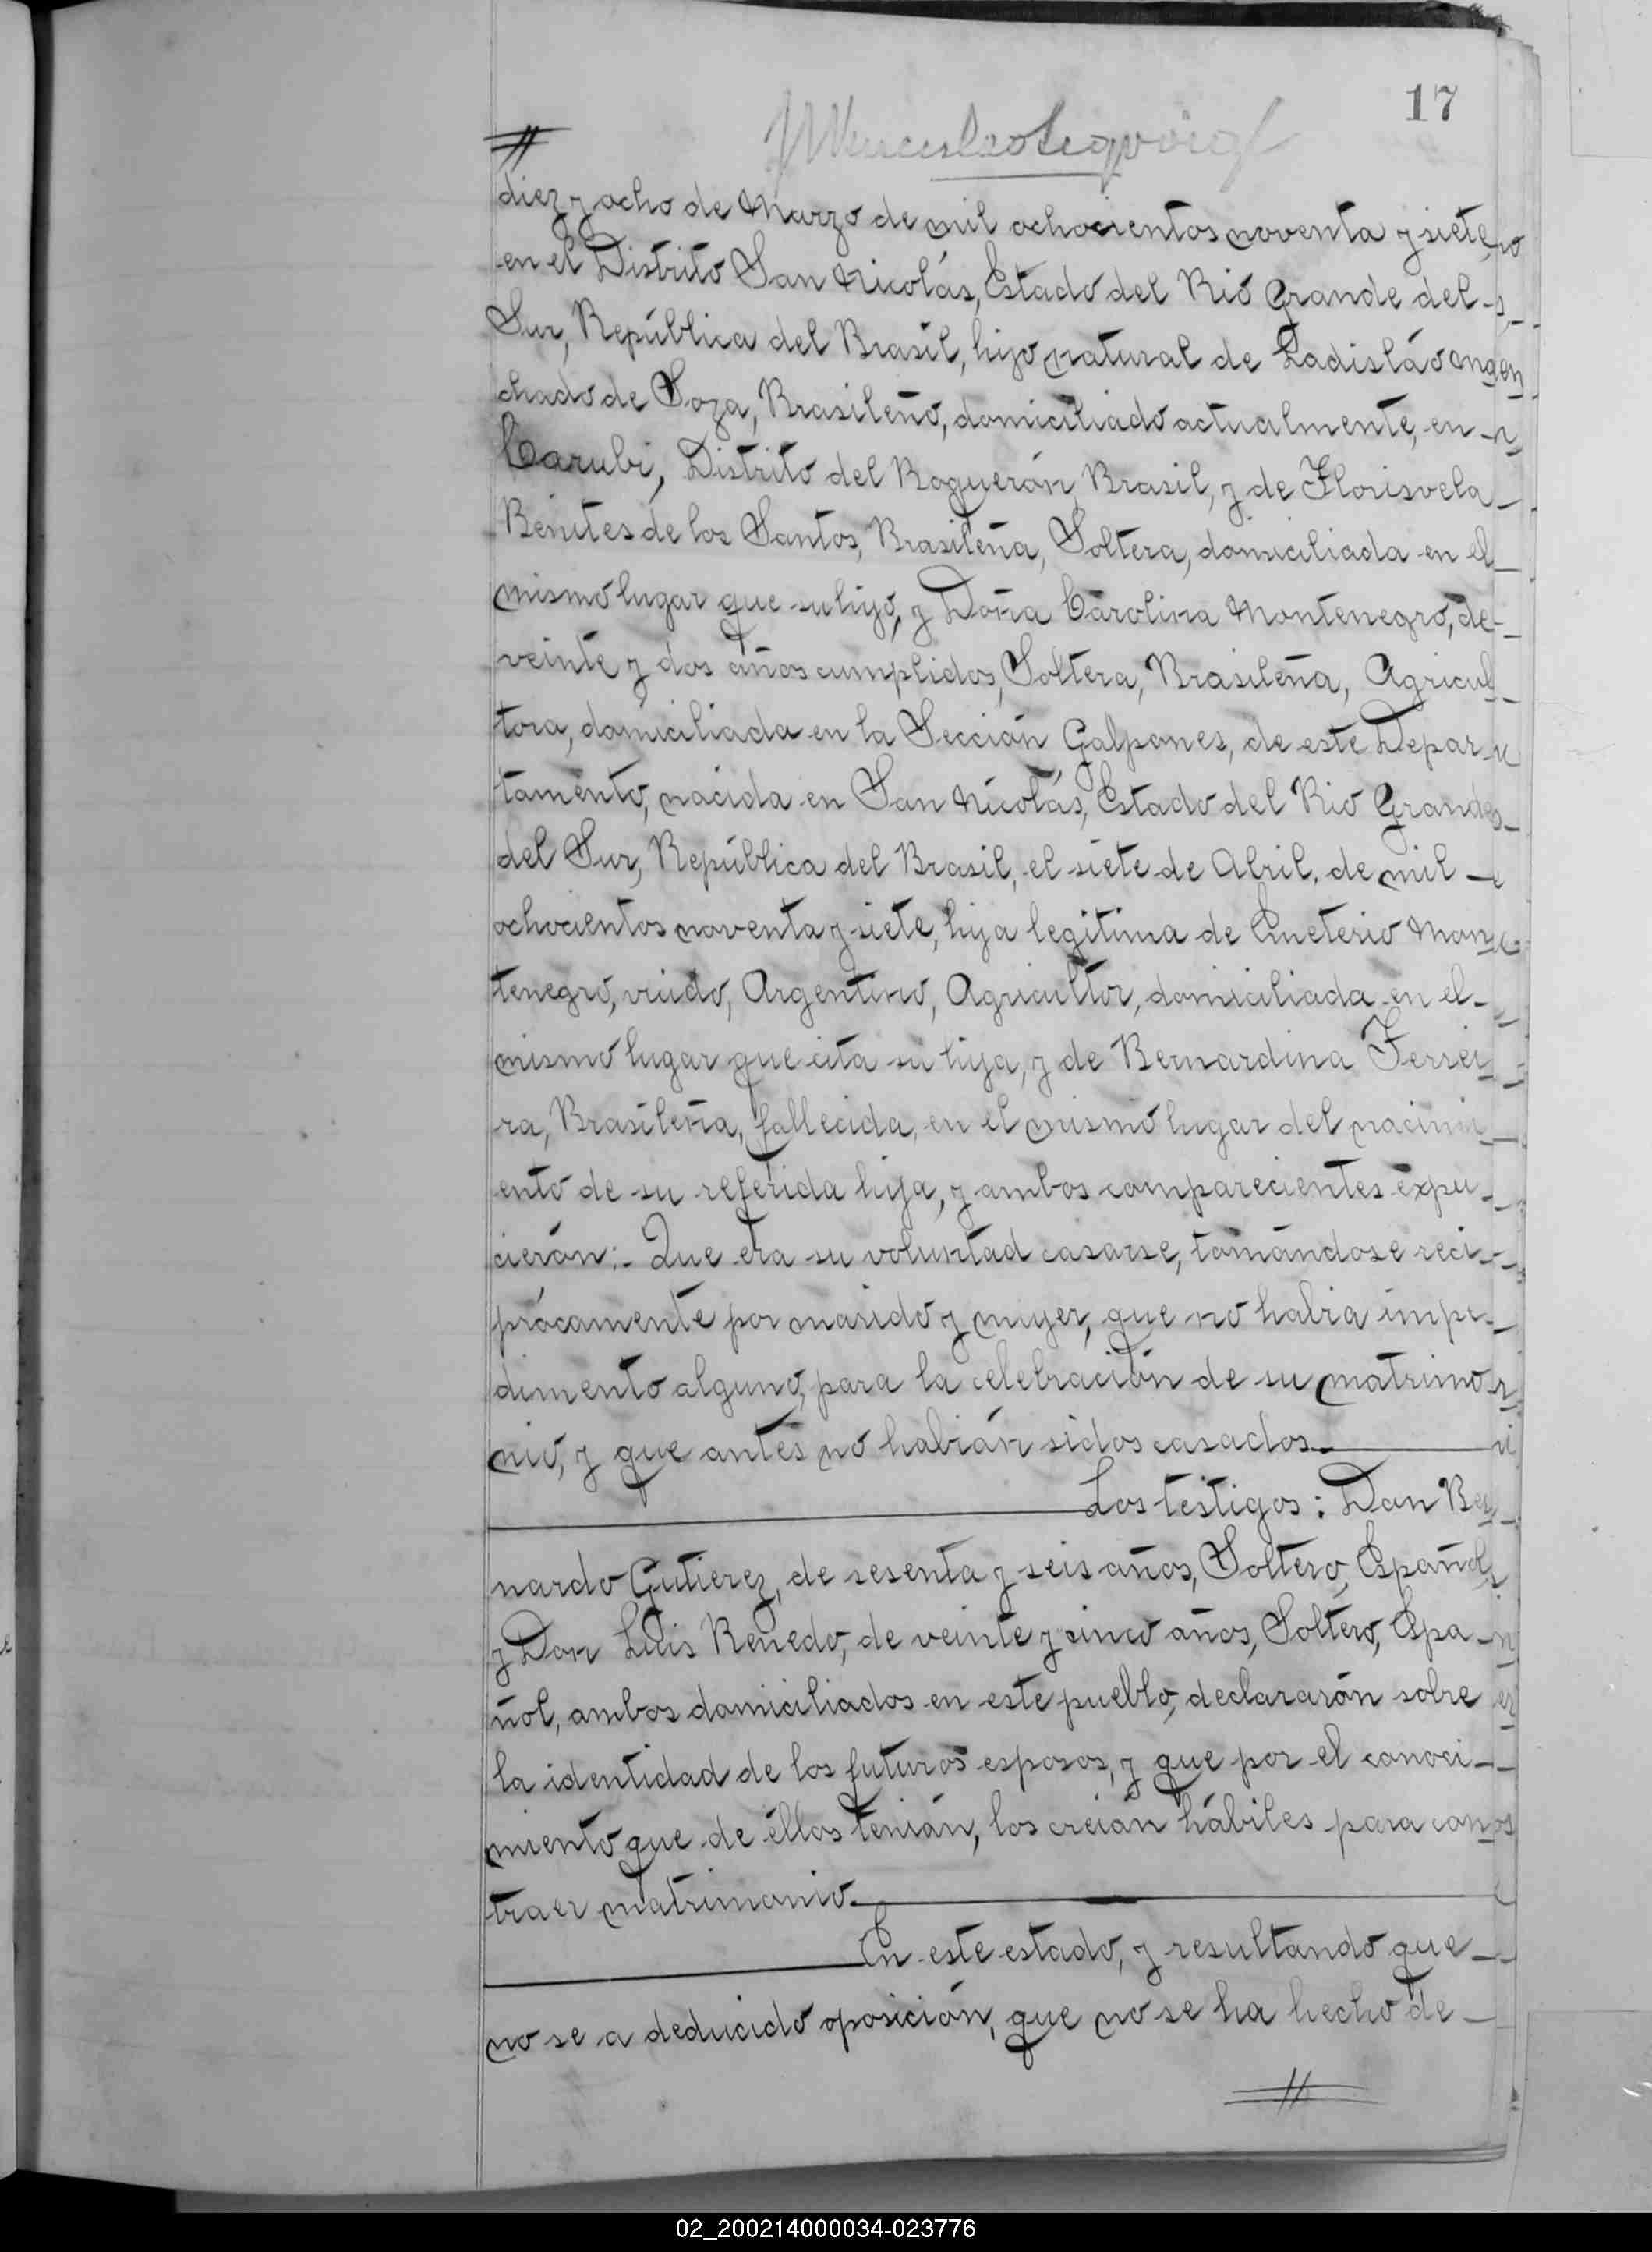 17
diez y ocho de Marzo de mil ochocientos noventa y siete,
en el Distrito San Nicolás, Estado del Rio Grande del-
Sur, República del Brasil, hijo natural de Ladisláo Ma
chado de Soza, Brasileño, domiciliado actualmente, en-
Carubi, Distrito del Roguerón, Brasil, y de Florisvela
Benites de los Santos, Brasileña, Soltera, domiciliada en el
mismo lugar que su hijo, y Doña Carolina Montenegro, de-
veinte y dos años cumplidos, Soltera, Brasileña, Agricul
tora, domiciliada en la Sección Galpones, de este Depar
tamento, nacida en San Nicolás, Estado del Rio Grande
del Sur, República del Brasil, el siete de Abril, de mil
ochocientos noventa y siete, hija legitima de Emeterio Mon
tenegro, viudo, Argentino, Agricultor, domiciliada en el-
mismo lugar que cita su hija, y de Bernardina Ferrei
ra, Brasileña, fallecida, en el mismo lugar del nacimi
ento de su referida hija, y ambos comparecientes expu-
cierón:- Que era su voluntad casarse, tomándose reci-
prócamente por marido y mujer, que no habia impe-
dimento alguno, para la celebración de su matrimo
nio, y que antes no habián sidos casados.
Los testigos: Don Ber
nardo Gutierez, de sesenta y seis años, Soltero, Español,
y Don Luis Renedo, de veinte y cinco años, Soltero, Espa-
ñol, ambos domiciliados en este pueblo, declararón sobre
la identidad de los futuros esposos, y que por el conoci-
miento que de éllos tenián, los creián hábiles para con
traer matrimonio.
En este estado, y resultando que-
no se a deducido oposición, que no se ha hecho de-
02_200214000034-023776